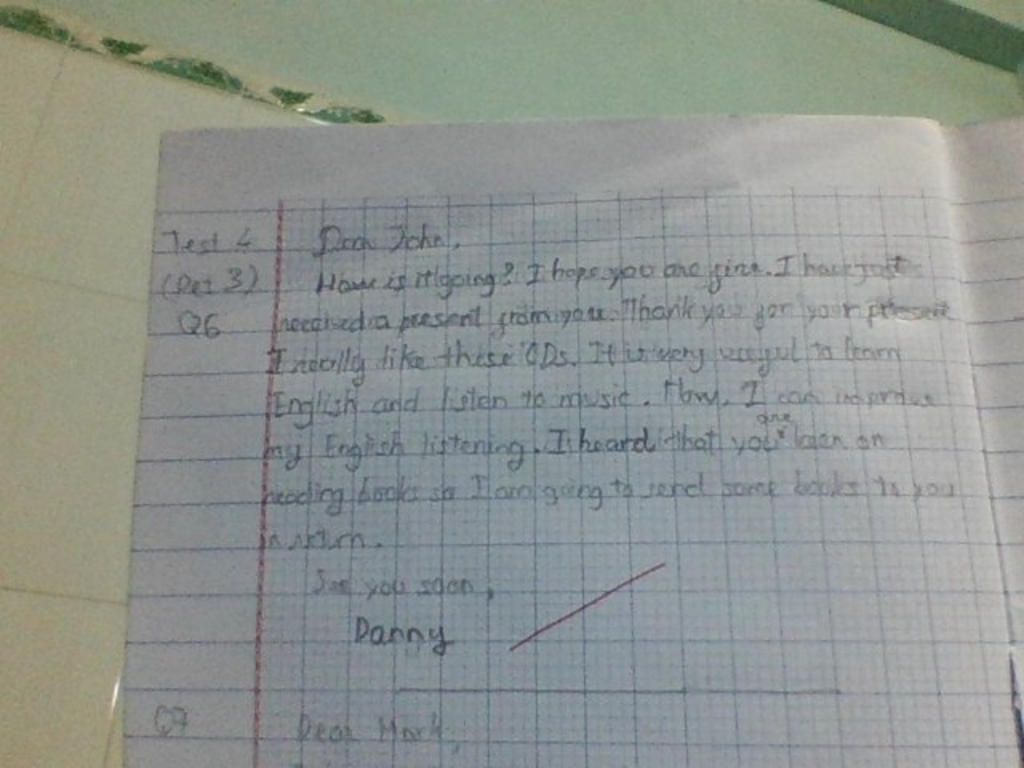 Test 4 Dear John,
(Pet 3) How is it going? I hope you are fine. I have just
Q6 received a present from you. Thank you for your present
I really like these CDs. It is very useful to learn
English and listen to music. Now, I can improve
are
my English listening. I heard that you keen on
reading books so I am going to send some books to you
in return.
See you soon,
Danny
Q7 Dear Mark,